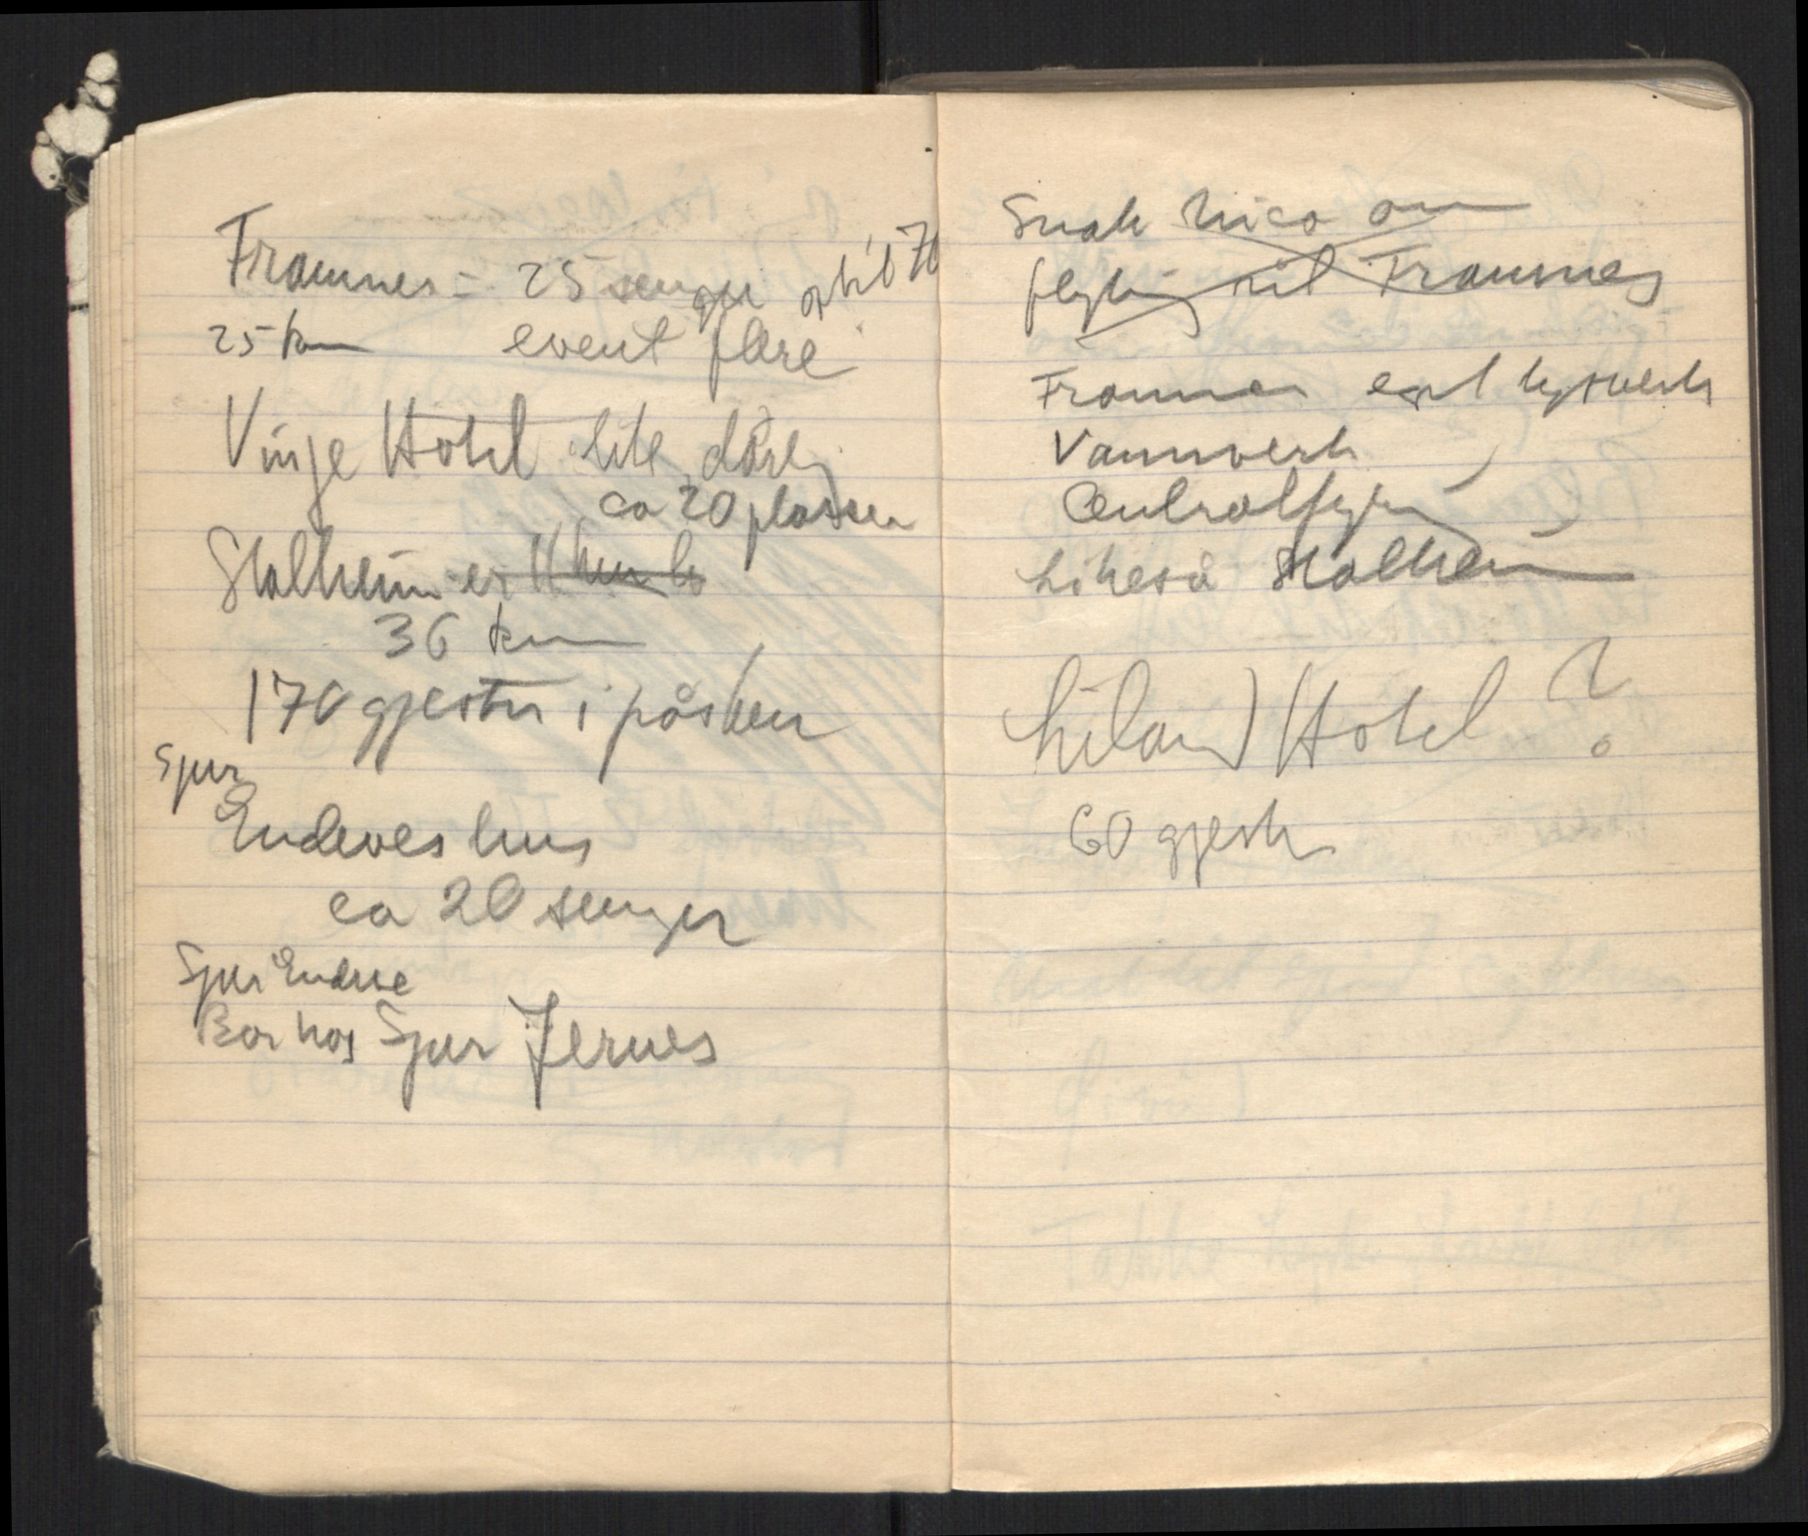 Framnes = 25 senger optil 70
25 km event flere
Vinje Hotel lite dårlig
ca 20 plasser
Stalheim er
36 km
170 gjester i påsken
Sjur
Endeves hus
ca 20 senger
Sjur Endeve
Bor hos Sjur Jernes
Snak Nico om
flytning til Framnes
Framnes eget lysverk
Vannverk
Centralfyr
Likeså Stalheim
Liland Hotel ?
60 gjester